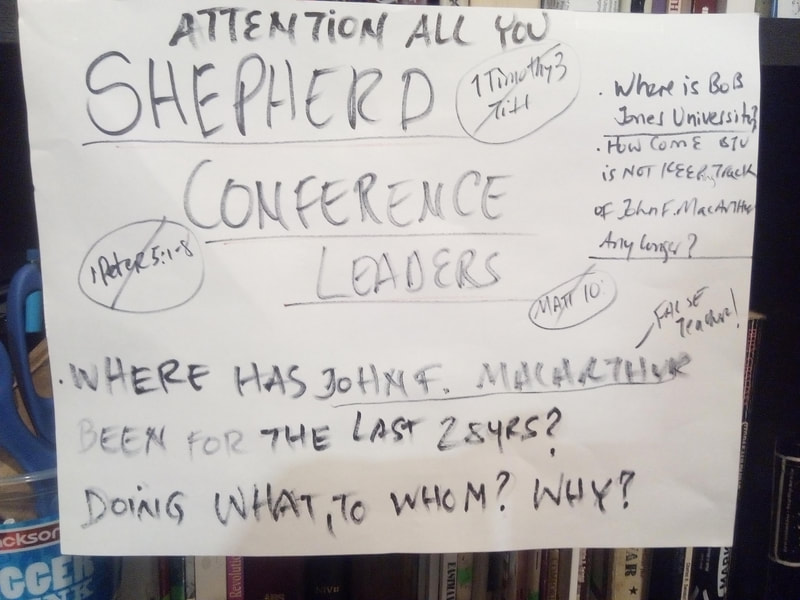 ATTENTION ALL YOU
SHEPHERD
1 Timothy 3
Tit 1
CONFERENCE
LEADERS
1 Peter 5:1-8
MATT 10:
. Where is BoB
Jones University?
. HOW COME BJU
is NOT KEEPing TRACK
OF John F. MacArthur
Any longer?
FALSE
Teacher!
. WHERE HAS JOHN F. MACARTHUR
BEEN FOR THE LAST 28YRS?
DOING WHAT, TO WHOM? WHY?
ckson
GGER